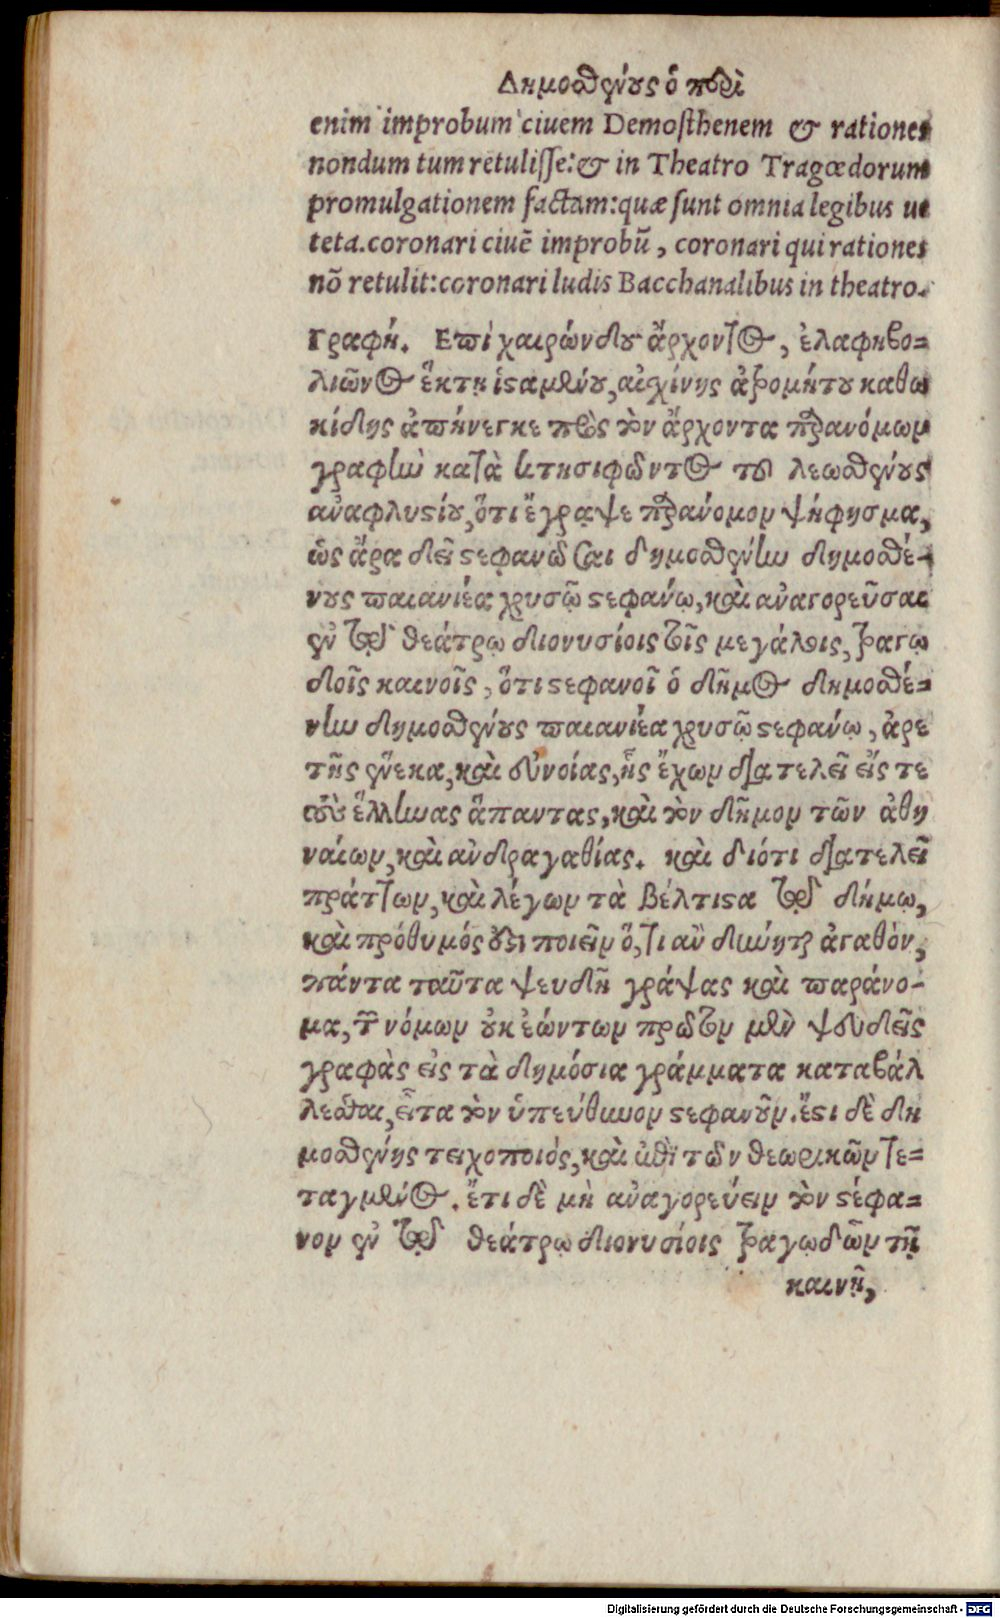 Δημοσθένους ὁ περὶ
enim improbum ciuem Demosthenem & rationes
nondum tum retulisse: & in Theatro Tragœdorum
promulgationem factam: quæ sunt omnia legibus ue
teta. coronari ciuẽ improbũ, coronari qui rationes
nõ retulit: coronari ludis Bacchanalibus in theatro.
Γραφή. Επὶ χαιρώνδου ἄρχοντος, ἐλαφηβο=
λιῶνος ἕκτῃ ἱσαμένου, αἰσχίνης ἀτρομήτου καθω
κίδης ἀπήνεγκε πρὸς τὸν ἄρχοντα παρανόμων
γραφὴν κατὰ κτησιφῶντος τοῦ λεωσθένους
ἀναφλυστίου, ὅτι ἔγραψε παράνομον ψήφησμα,
ὡς ἄρα δεῖ στεφανῶσαι δημοσθένην δημοσθέ-
νους παιανιέα χρυσῷ στεφάνῳ, καὶ ἀναγορεῦσαι
ἐν τῷ θεάτρῳ διονυσίοις τοῖς μεγάλοις, τραγῳ
δοῖς καινοῖς, ὅτι στεφανοῖ ὁ δῆμος δημοσθέ=
νην δημοσθένους παιανιέα χρυσῷ στεφάνῳ, ἀρε
τῆς ἕνεκα, καὶ εὐνοίας, ἧς ἔχων διατελεῖ εἴς τε
τοὺς ἕλληνας ἅπαντας, καὶ τὸν δῆμον τῶν ἀθη
ναίων, καὶ ἀνδραγαθίας. καὶ διότι διατελεῖ
πράττων, καὶ λέγων τὰ βέλτιστα τῷ δήμῳ,
καὶ πρόθυμός ἐστι ποιεῖν ὅ,τι ἂν δύνηται ἀγαθόν,
πάντα ταῦτα ψευδῆ γράψας καὶ παράνο-
μα, τῶν νόμων οὐκ ἐώντων πρῶτον μὲν ψευδεῖς
γραφὰς εἰς τὰ δημόσια γράμματα καταβάλ
λεσθαι, εἶτα τὸν ὑπεύθυνον στεφανοῦν. ἔστι δὲ δη
μοσθένης τειχοποιός, καὶ ἐπὶ τῶν θεωρικῶν τε=
ταγμένος. ἔτι δὲ μὴ ἀναγορεύειν τὸν στέφα=
νον ἐν τῷ θεάτρῳ διονυσίοις τραγῳδῶν τῇ
καινῇ,
Digitalisierung gefördert durch die Deutsche Forschungsgemeinschaft - DFG